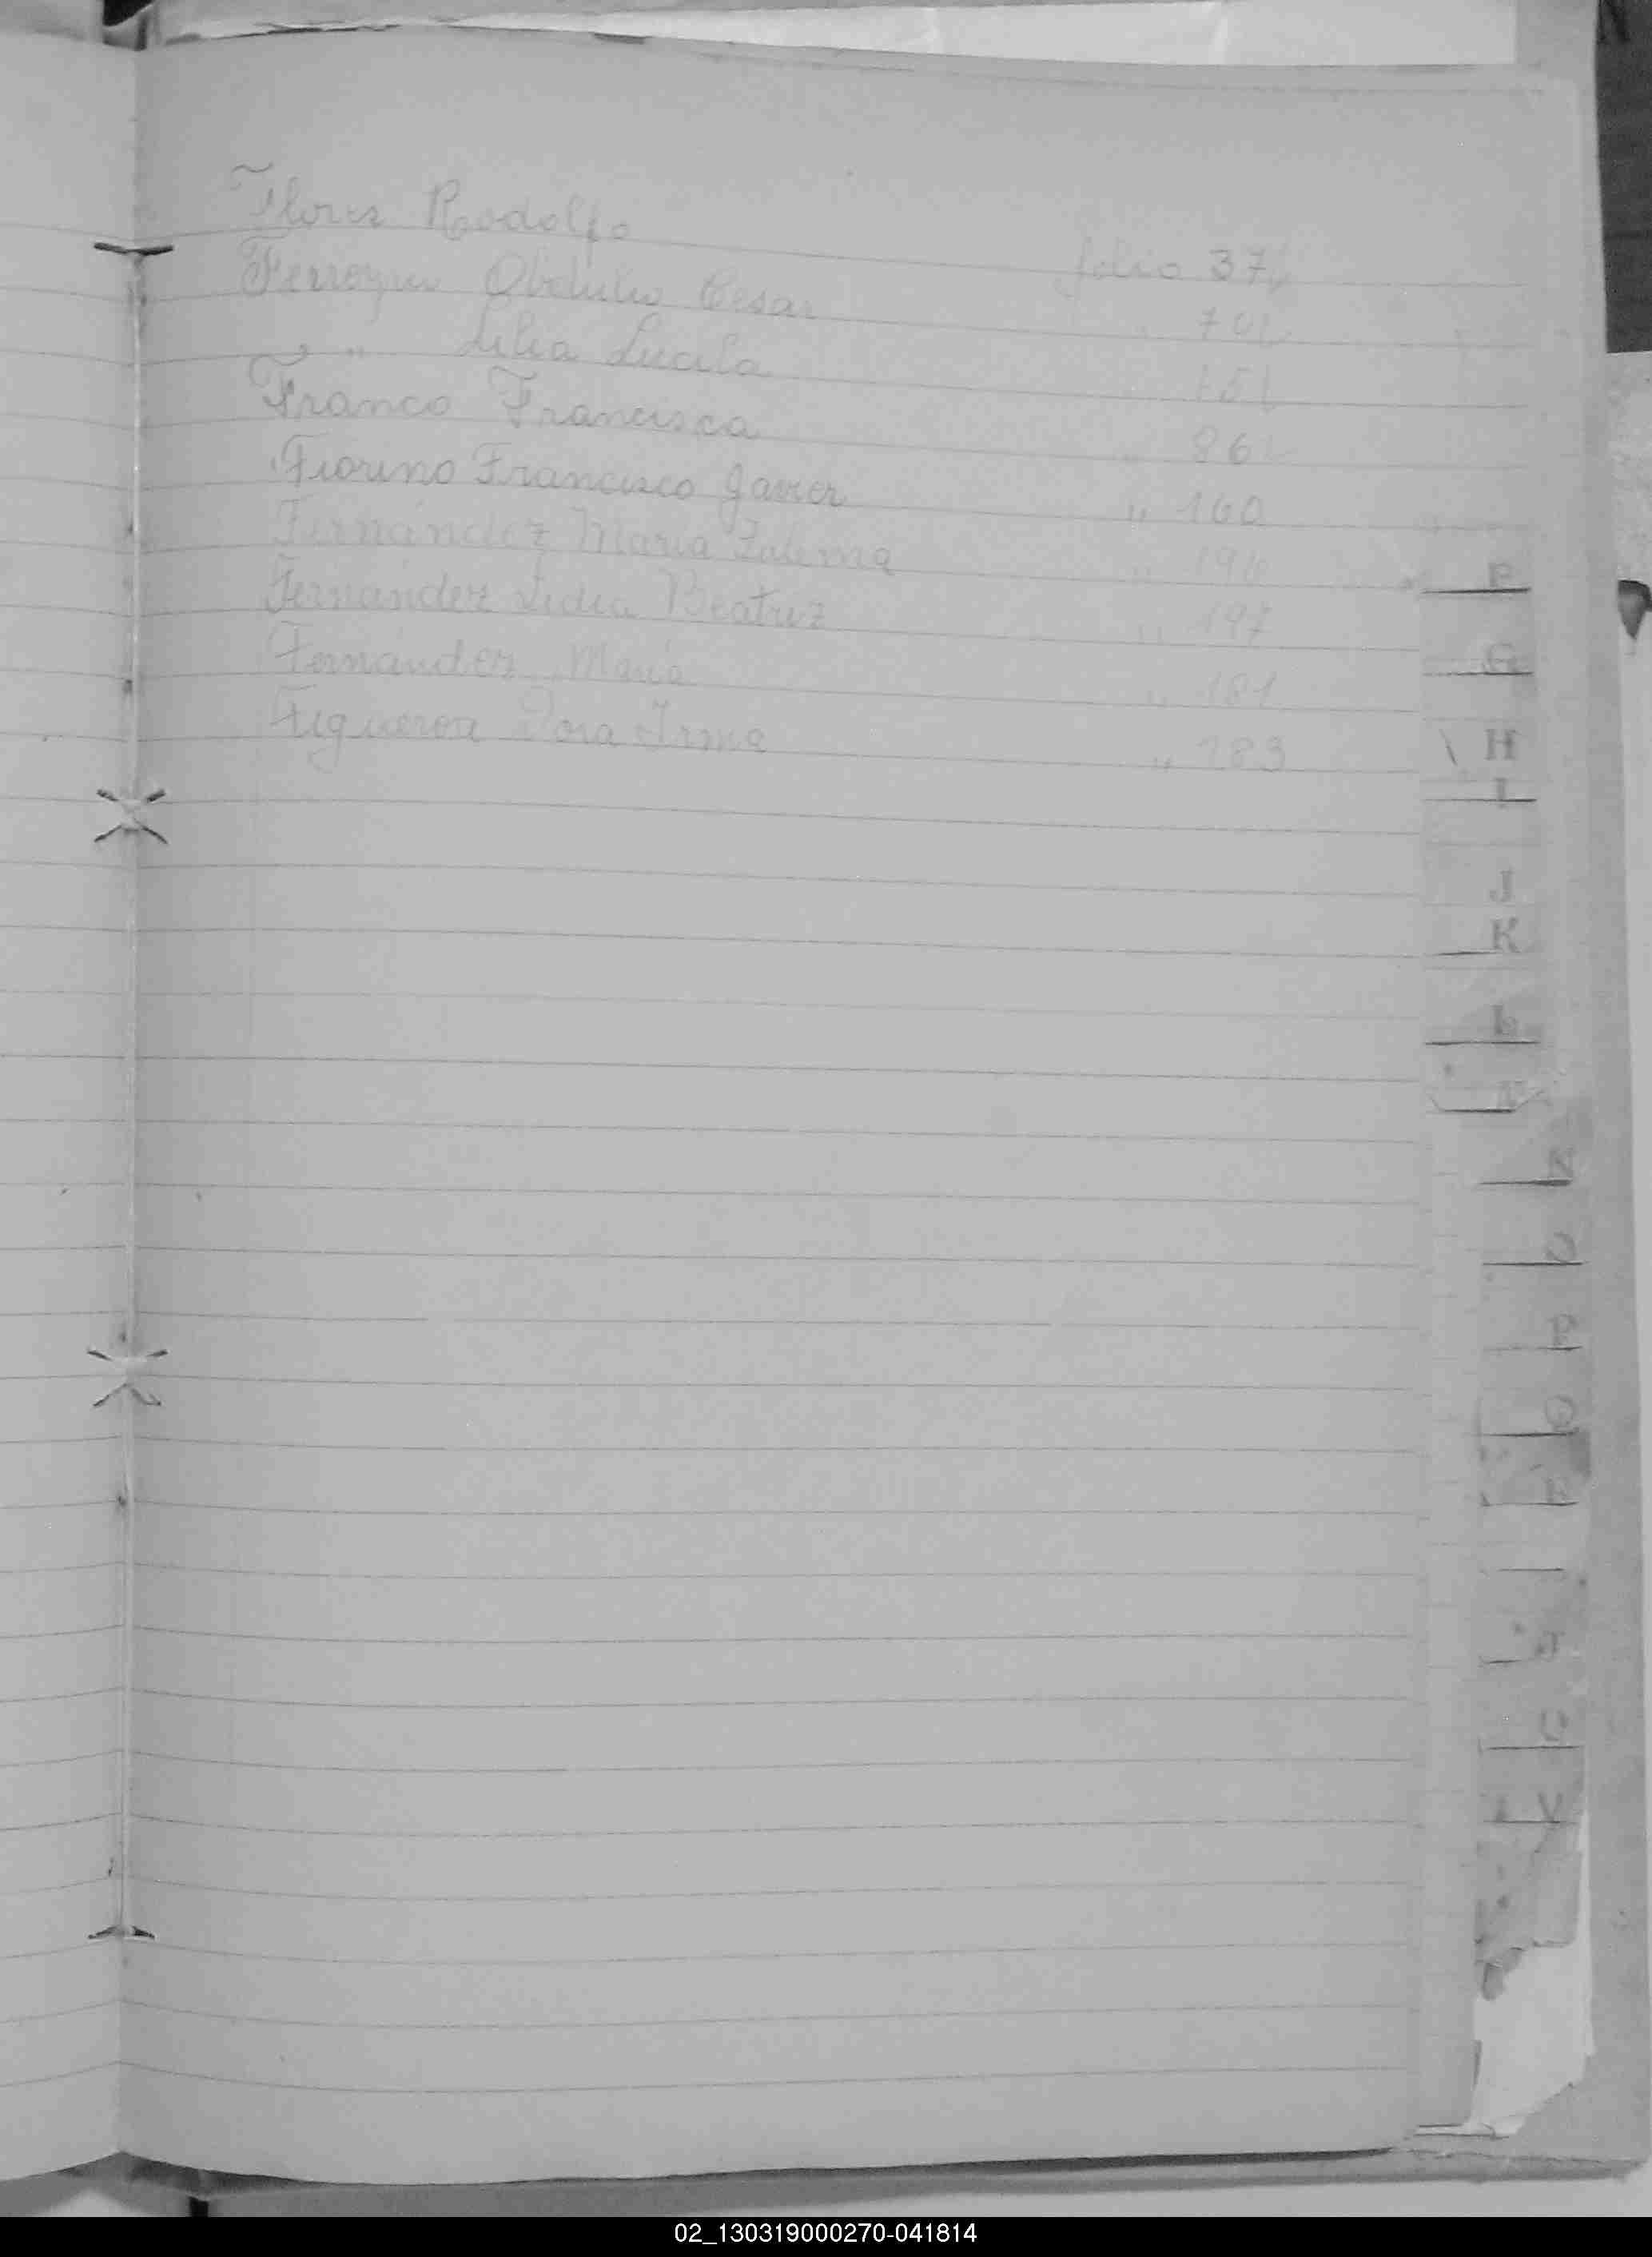 Flores Rodolfo folio 37
Ferreyra Obdulio Cesar " 70
" " Lilia Lucila 151
Franco Francisca " 86
Fiorino Francisco Javier " 160
Fernández María Zulema " 196
Fernández Lidia Beatriz " 197
Fernández María " 181
Figueroa Dora Irma " 183
F
G
H
I
J
K
L
N
O
P
Q
R
T
U
V
02_130319000270-041814